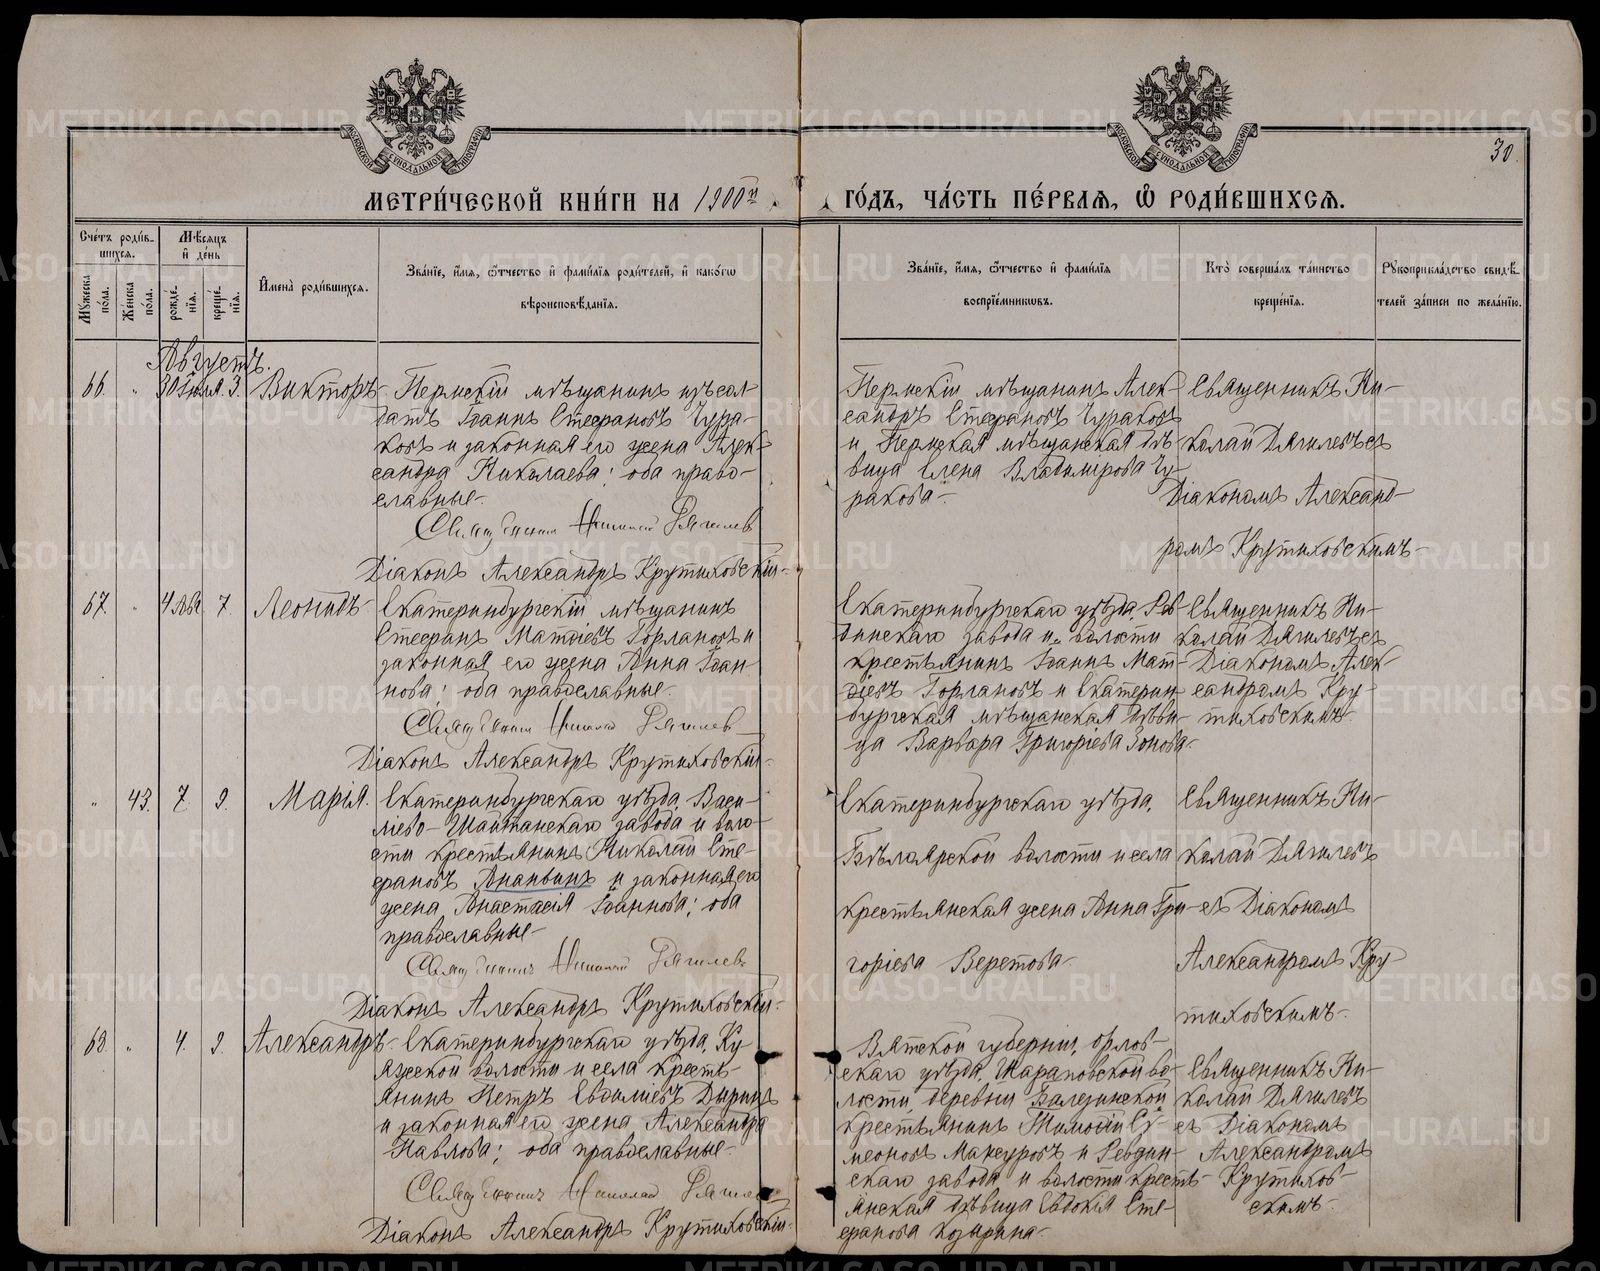 МЕТРИ́ЧЕСКОЙ КНИ́ГИ НА 1900й
ГО́ДЪ, ЧА́СТЬ ПЕ́РВАЯ, Ѽ РОДИ́ВШИХСЯ.
30.
МОСКОВСКОЙ СѴНОДАЛЬНОЙ ТИПОГРАФІИ
МОСКОВСКОЙ СѴНОДАЛЬНОЙ ТИПОГРАФІИ
Сче́тъ роди́в-
шихся.
Мѣ́сяцъ
и҆ де́нь
Мꙋ́жеска по́ла.
Же́нска по́ла.
рожде́-
нїя.
креще́-
нїя.
И҆мена̀ роди́вшихся.
Зва́нїе, и҆́мя, ѻ҆́тчество и҆ фами́лїя роди́телей, и҆ како́гѡ
вѣроисповѣ́данїя.
Зва́нїе, и҆́мя, ѻ҆́тчество и҆ фами́лїя
воспрїе́мникѡвъ.
Кто̀ соверша́лъ та́инство
креще́нїя.
Рꙋкоприкла́дство свидѣ́-
телей за́писи по жела́нїю.
Августъ.
66. " 30 Іюля. 3. Викторъ
Пермскій мѣщанинъ изъ сол-
датъ Іоаннъ Стефановъ Чура-
ковъ и законная его жена Алек-
сандра Николаева; оба право-
славные.
Священникъ Николай Дягилевъ
Діаконъ Александръ Крутиховскій.
Пермскій мѣщанинъ Алек-
сандръ Стефановъ Чураковъ
и Пермская мѣщанская дѣ-
вица Елена Владимирова Чу-
ракова.
Священникъ Ни-
колай Дягилевъ съ
Діакономъ Александ-
ромъ Крутиховскимъ.
67. " 4 Авг. 7. Леонидъ
Екатеринбургскій мѣщанинъ
Стефанъ Матѳіевъ Горлановъ и
законная его жена Анна Іоан-
нова; оба православные.
Священникъ Николай Дягилевъ
Діаконъ Александръ Крутиховскій.
Екатеринбургскаго уѣзда, Рев-
динскаго завода и волости
крестьянинъ Іоаннъ Мат-
ѳіевъ Горлановъ и Екатерин-
бургская мѣщанская дѣви-
ца Варвара Григоріева Зонова.
Священникъ Ни-
колай Дягилевъ съ
Діакономъ Алек-
сандромъ Кру-
тиховскимъ.
" 43. 7. 9. Марія.
Екатеринбургскаго уѣзда, Васи-
ліево-Шайтанскаго завода и воло-
сти крестьянинъ Николай Сте-
фановъ Ананьинъ и законная его
жена Анастасія Іоаннова; оба
православные.
Священникъ Николай Дягилевъ
Діаконъ Александръ Крутиховскій.
Екатеринбургскаго уѣзда,
Бѣлоярской волости и села
крестьянская жена Анна Гри-
горіева Веретова.
Священникъ Ни-
колай Дягилевъ
съ Діакономъ
Александромъ Кру-
тиховскимъ.
68. " 4. 9. Александръ
Екатеринбургскаго уѣзда, Ку-
яжской волости и села кресть-
янинъ Петръ Евдоміевъ Дыринъ
и законная его жена Александра
Павлова; оба православные.
Священникъ Николай Дягилевъ
Діаконъ Александръ Крутиховскій.
Вятской губерніи, Орлов-
скаго уѣзда, Шараповской во-
лости, деревни Балезинской
крестьянинъ Тимоѳій Си-
меоновъ Максуровъ и Ревдин-
скаго завода и волости кресть-
янская дѣвица Евдокія Сте-
фанова Козырина.
Священникъ Ни-
колай Дягилевъ
съ Діакономъ
Александромъ
Крутихов-
скимъ.
METRIKI.GASO-URAL.RU